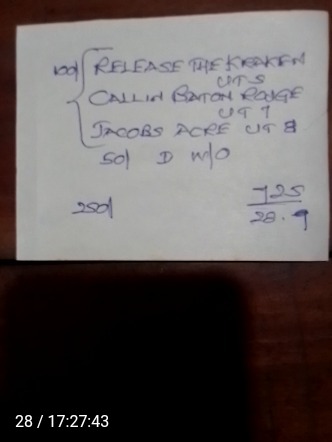 100/ RELEASE THE KRAKEN
UTS
CALLIN BATON ROUGE
UT 7
JACOBS ACRE UT 8
50/ D W/O
250/
725
28.9
28 / 17:27:43